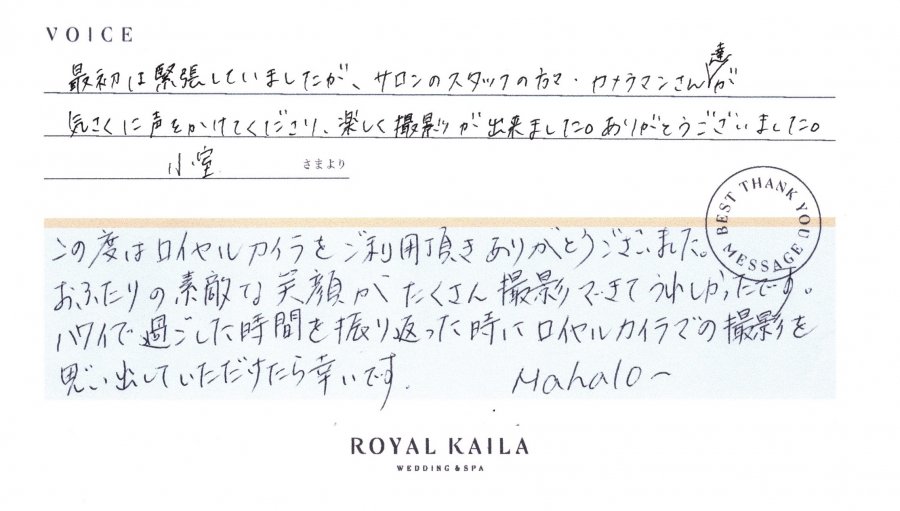 VOICE
最初は緊張していましたが、サロンのスタッフの方々・カメラマンさん達が
気さくに声をかけてくださり、楽しく撮影が出来ました。ありがとうございました。
小室 さまより
BEST THANK YOU MESSAGE
この度はロイヤルカイラをご利用頂きありがとうございました。
おふたりの素敵な笑顔がたくさん撮影できてうれしかったです。
ハワイで過ごした時間を振り返った時にロイヤルカイラでの撮影を
思い出していただけたら幸いです. Mahalo~
ROYAL KAILA
WEDDING & SPA